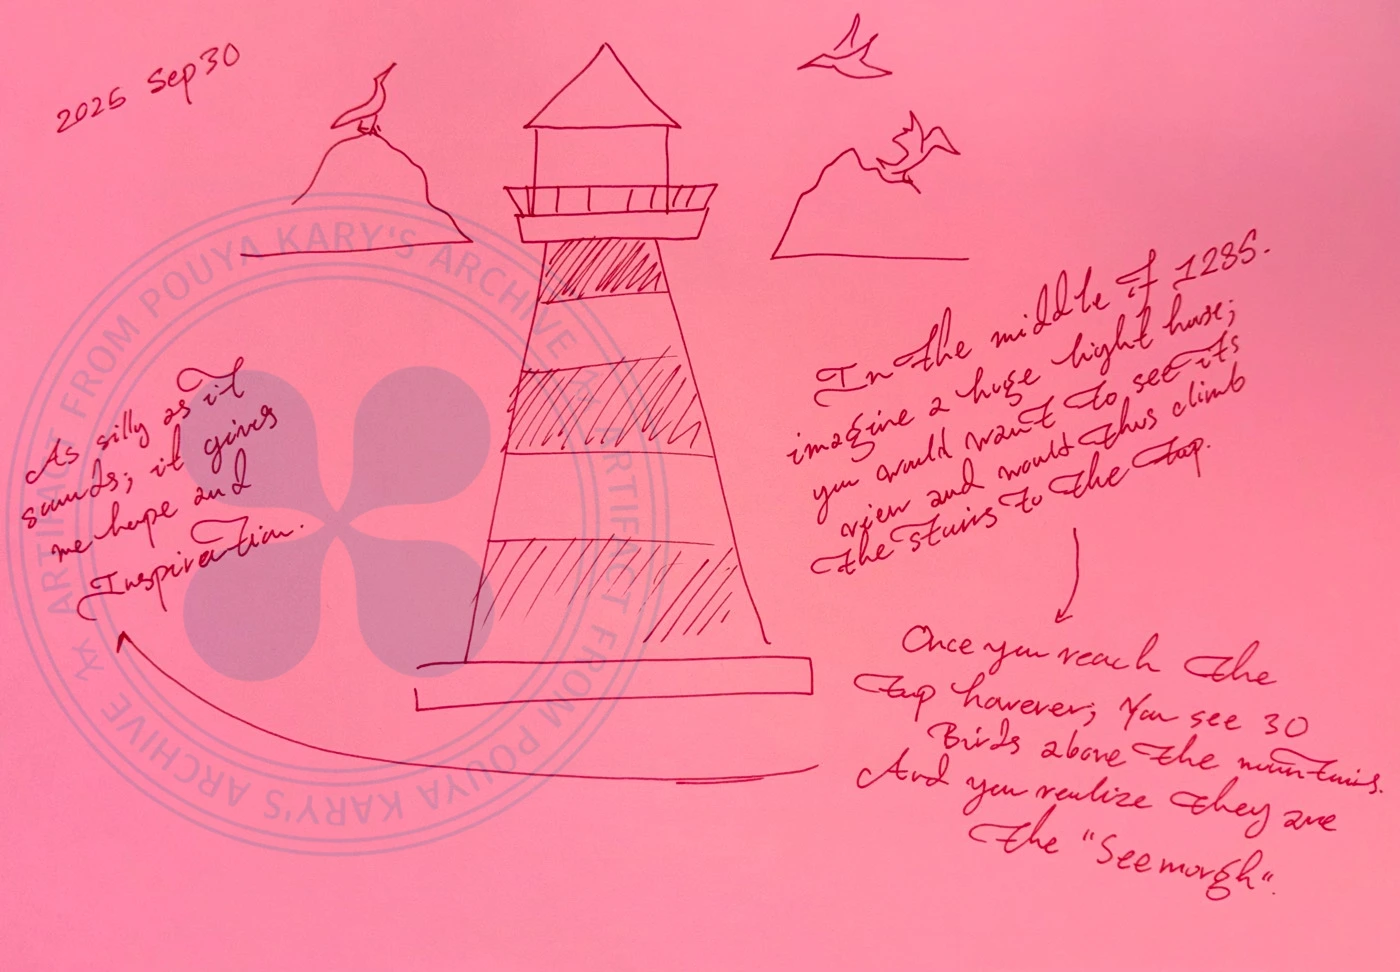 2025 Sep 30
In the middle of 1285.
imagine a huge light house;
you would want to see its
view and would thus climb
the stairs to the top.
Once you reach the
top however; You see 30
Birds above the mountains.
And you realize they are
the "Seemorgh".
As silly as it
sounds; it gives
me hope and
Inspiration.
ARTIFACT FROM POUYA KARY'S ARCHIVE
ARTIFACT FROM POUYA KARY'S ARCHIVE